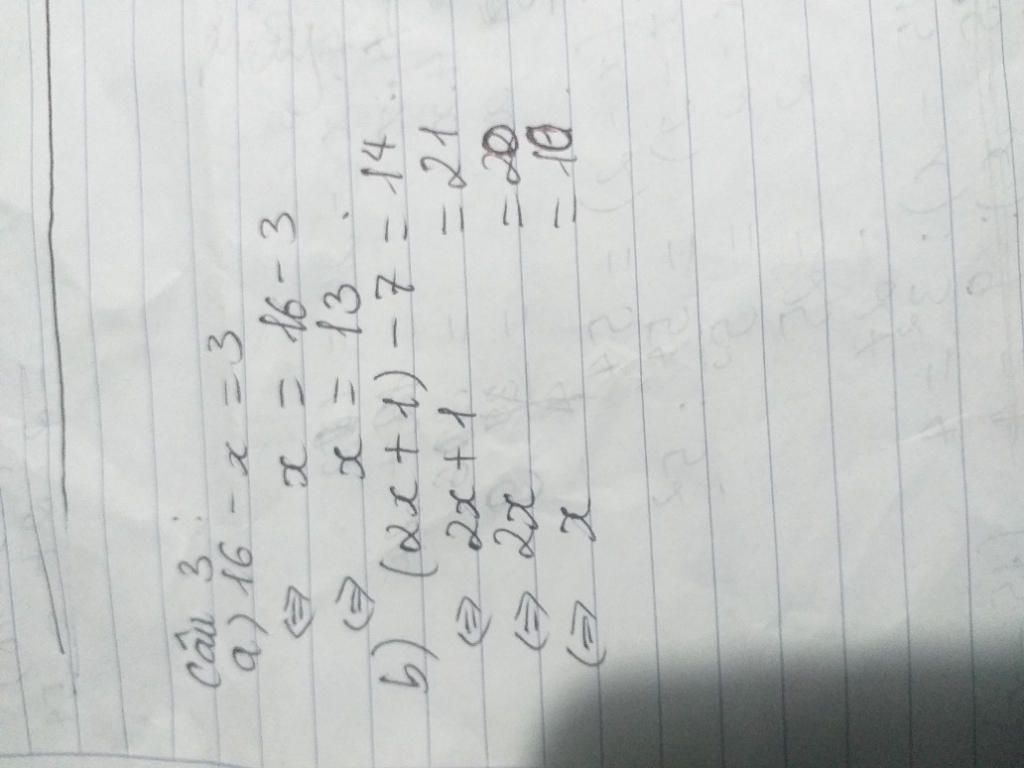 Câu 3:
a) 16 - x = 3
⇔ x = 16 - 3
⇔ x = 13.
b) (2x + 1) - 7 = 14
⇔ 2x + 1 = 21
⇔ 2x = 20
⇔ x = 10